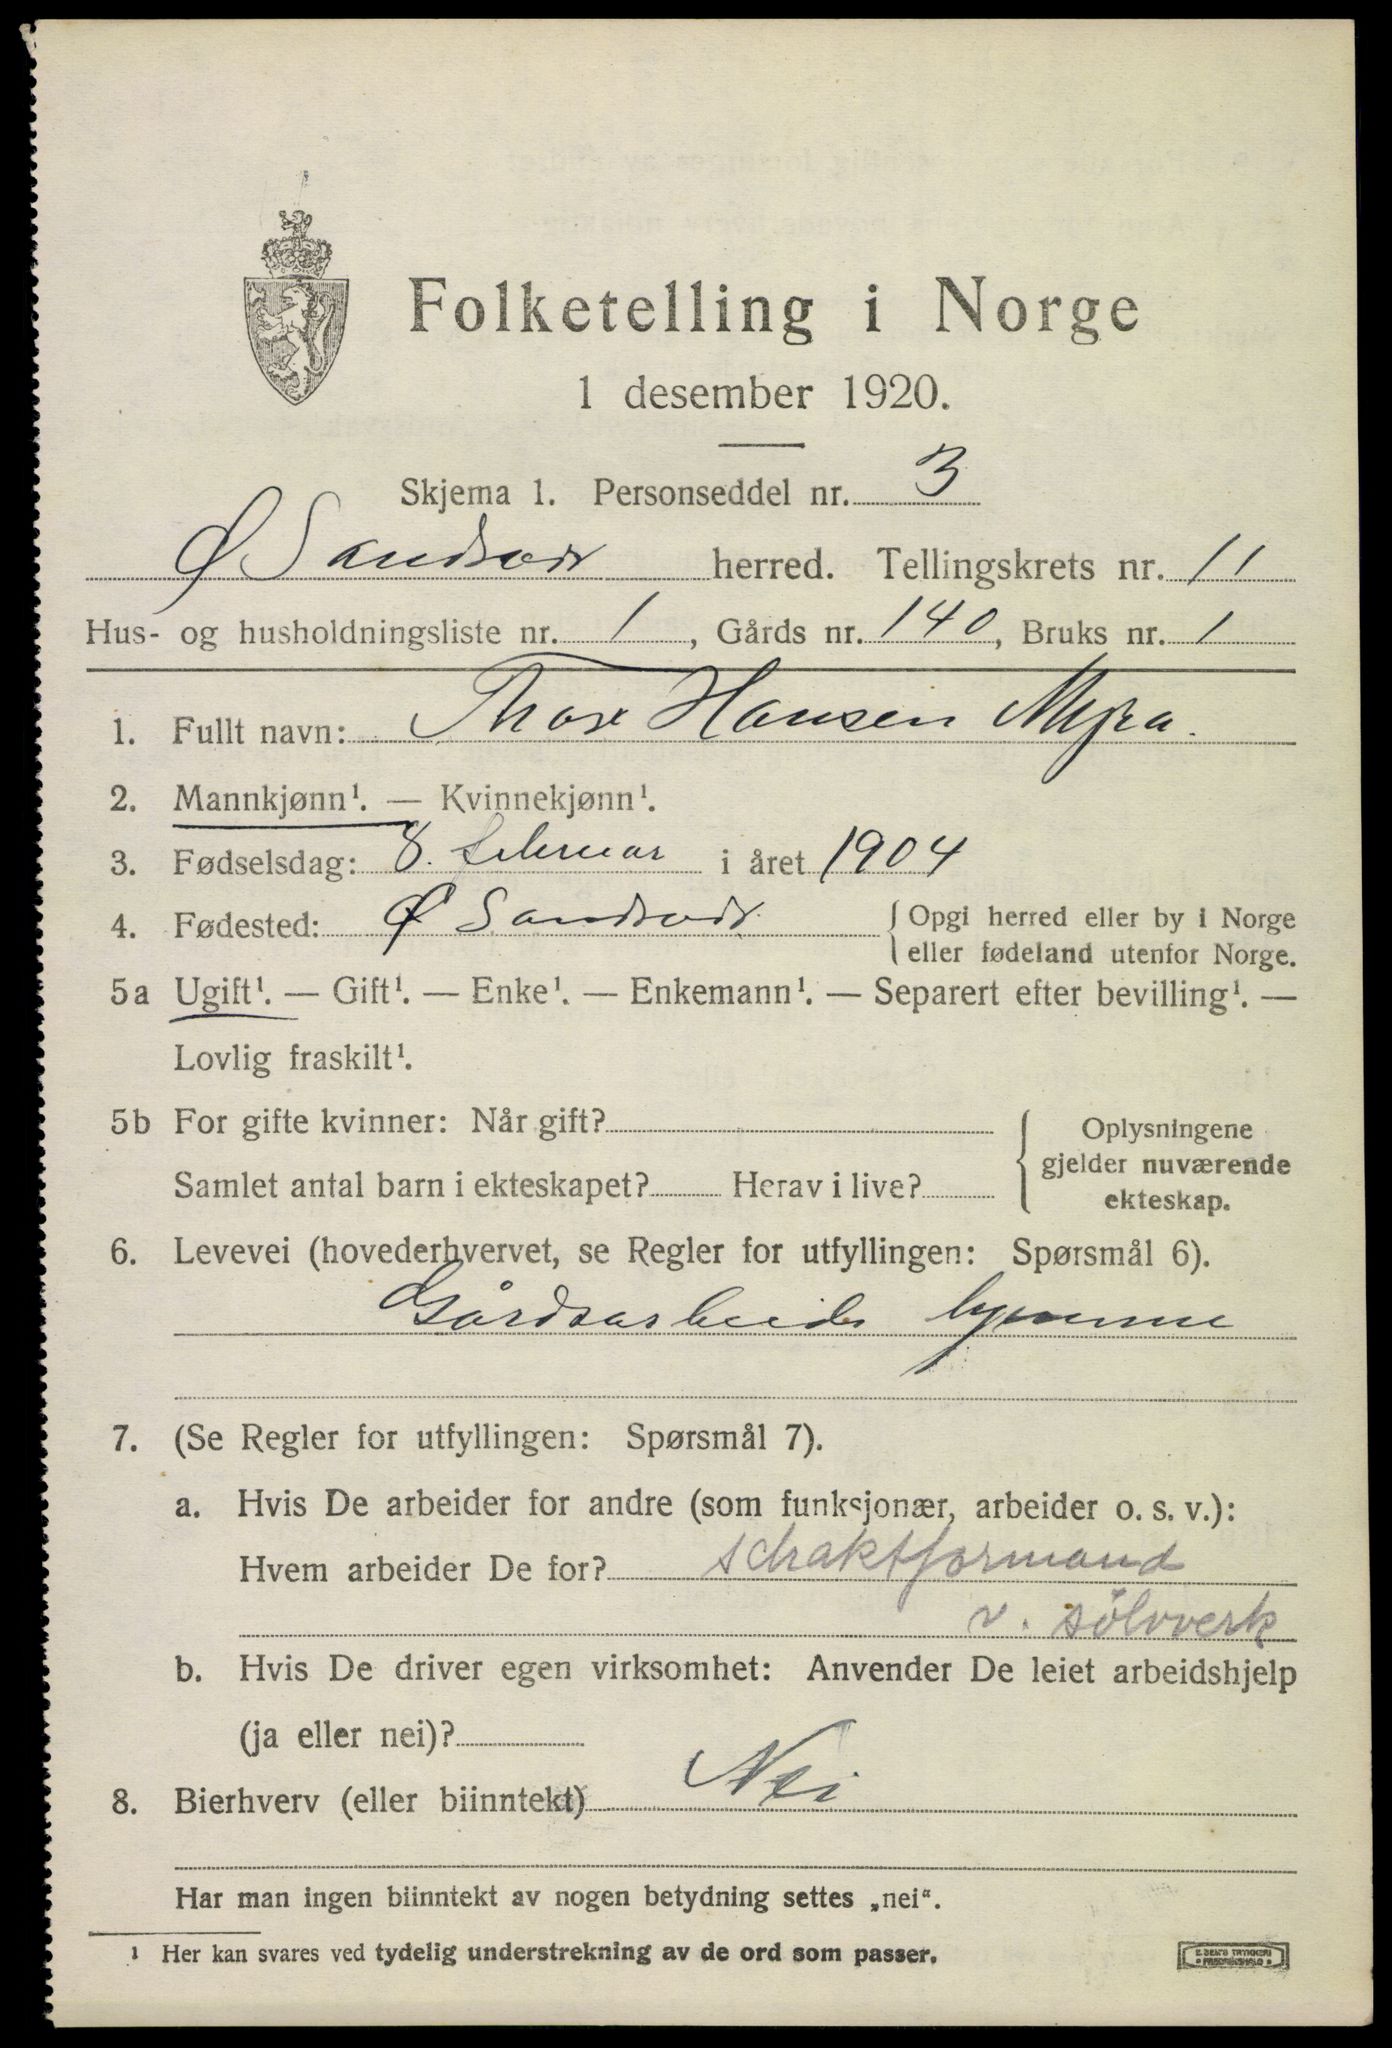 Folketelling i Norge
1 desember 1920.
Skjema 1. Personseddel nr. 3
Ø Sandsvær herred. Tellingskrets nr. 11
Hus- og husholdningsliste nr. 1, Gårds nr. 140, Bruks nr. 1
1. Fullt navn: Thore Hansen Myra.
2. Mannkjønn¹. — Kvinnekjønn¹.
3. Fødselsdag: 8. februar i året 1904
4. Fødested: Ø Sandsvær { Opgi herred eller by i Norge
eller fødeland utenfor Norge.
5a Ugift¹. — Gift¹. — Enke¹. — Enkemann¹. — Separert efter bevilling¹. —
Lovlig fraskilt¹.
5b For gifte kvinner: Når gift? { Oplysningene
gjelder nuværende
Samlet antal barn i ekteskapet? Herav i live?
ekteskap.
6. Levevei (hovederhvervet, se Regler for utfyllingen: Spørsmål 6).
Gårdsarbeide hjemme
7. (Se Regler for utfyllingen: Spørsmål 7).
a. Hvis De arbeider for andre (som funksjonær, arbeider o. s. v.):
Hvem arbeider De for? schaktformand
v. sölvverk
b. Hvis De driver egen virksomhet: Anvender De leiet arbeidshjelp
(ja eller nei)?
8. Bierhverv (eller biinntekt) Nei
Har man ingen biinntekt av nogen betydning settes „nei“.
¹ Her kan svares ved tydelig understrekning av de ord som passer.